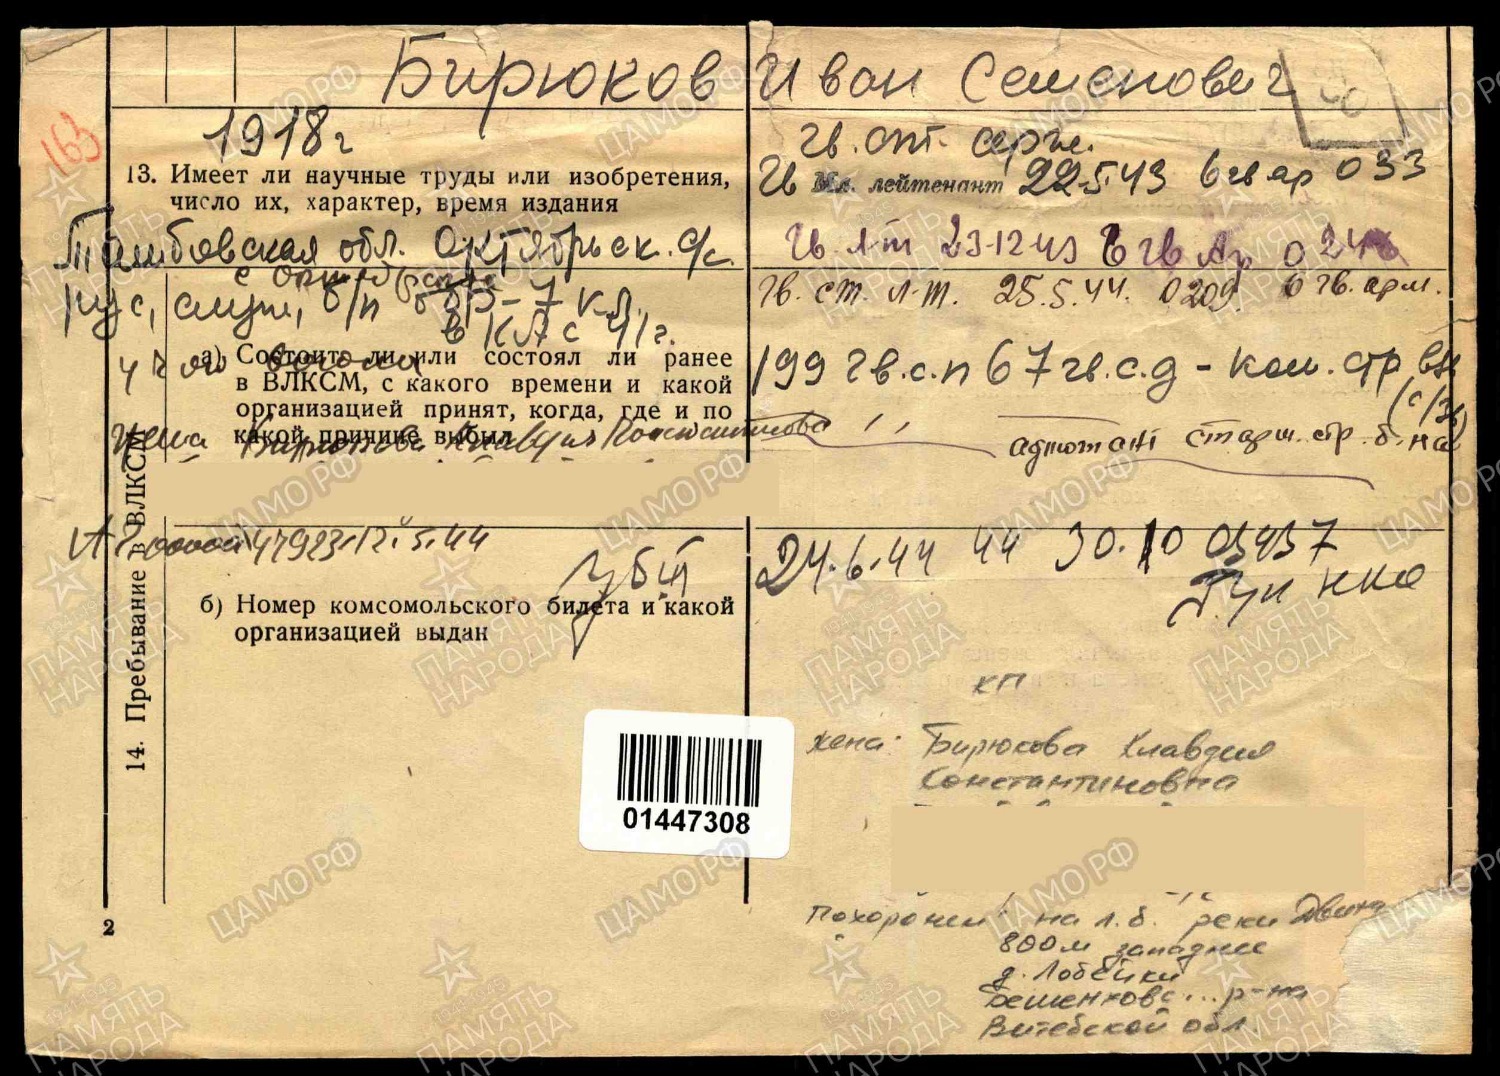 Бирюков Иван Семенович
163
1918 г
гв. ст. серж.
13. Имеет ли научные труды или изобретения,
число их, характер, время издания
Гв Мл. лейтенант 22.5.43 6 гв ар 033
Тамбовская обл. Октябрьск. с/с.
Гв л-т 23.12.43 6 гв Ар
рус, служ, б/п 7 кл.
Гв. ст. л-т. 25.5.44. 0209. 6 гв. арм.
в КА с 41 г.
а) Состоит ли или состоял ли ранее
в ВЛКСМ, с какого времени и какой
организацией принят, когда, где и по
какой причине выбыл
199 гв.с.п 67 гв.с.д - ком. стр
жена Бирюкова Клавдия Константиновна
адютант старш. стр. б-на
14. Пребывание в ВЛКСМ
12.5.44
убит
24.6.44 44 30.10
б) Номер комсомольского билета и какой
организацией выдан
КП
жена: Бирюкова Клавдия
Константиновна
01447308
Похоронен: на л.б. реки Двина
800 м западнее
д. Лобейки
Бешенковс... р-на
Витебской обл.
2
ЦАМО РФ
ПАМЯТЬ
НАРОДА
1941-1945